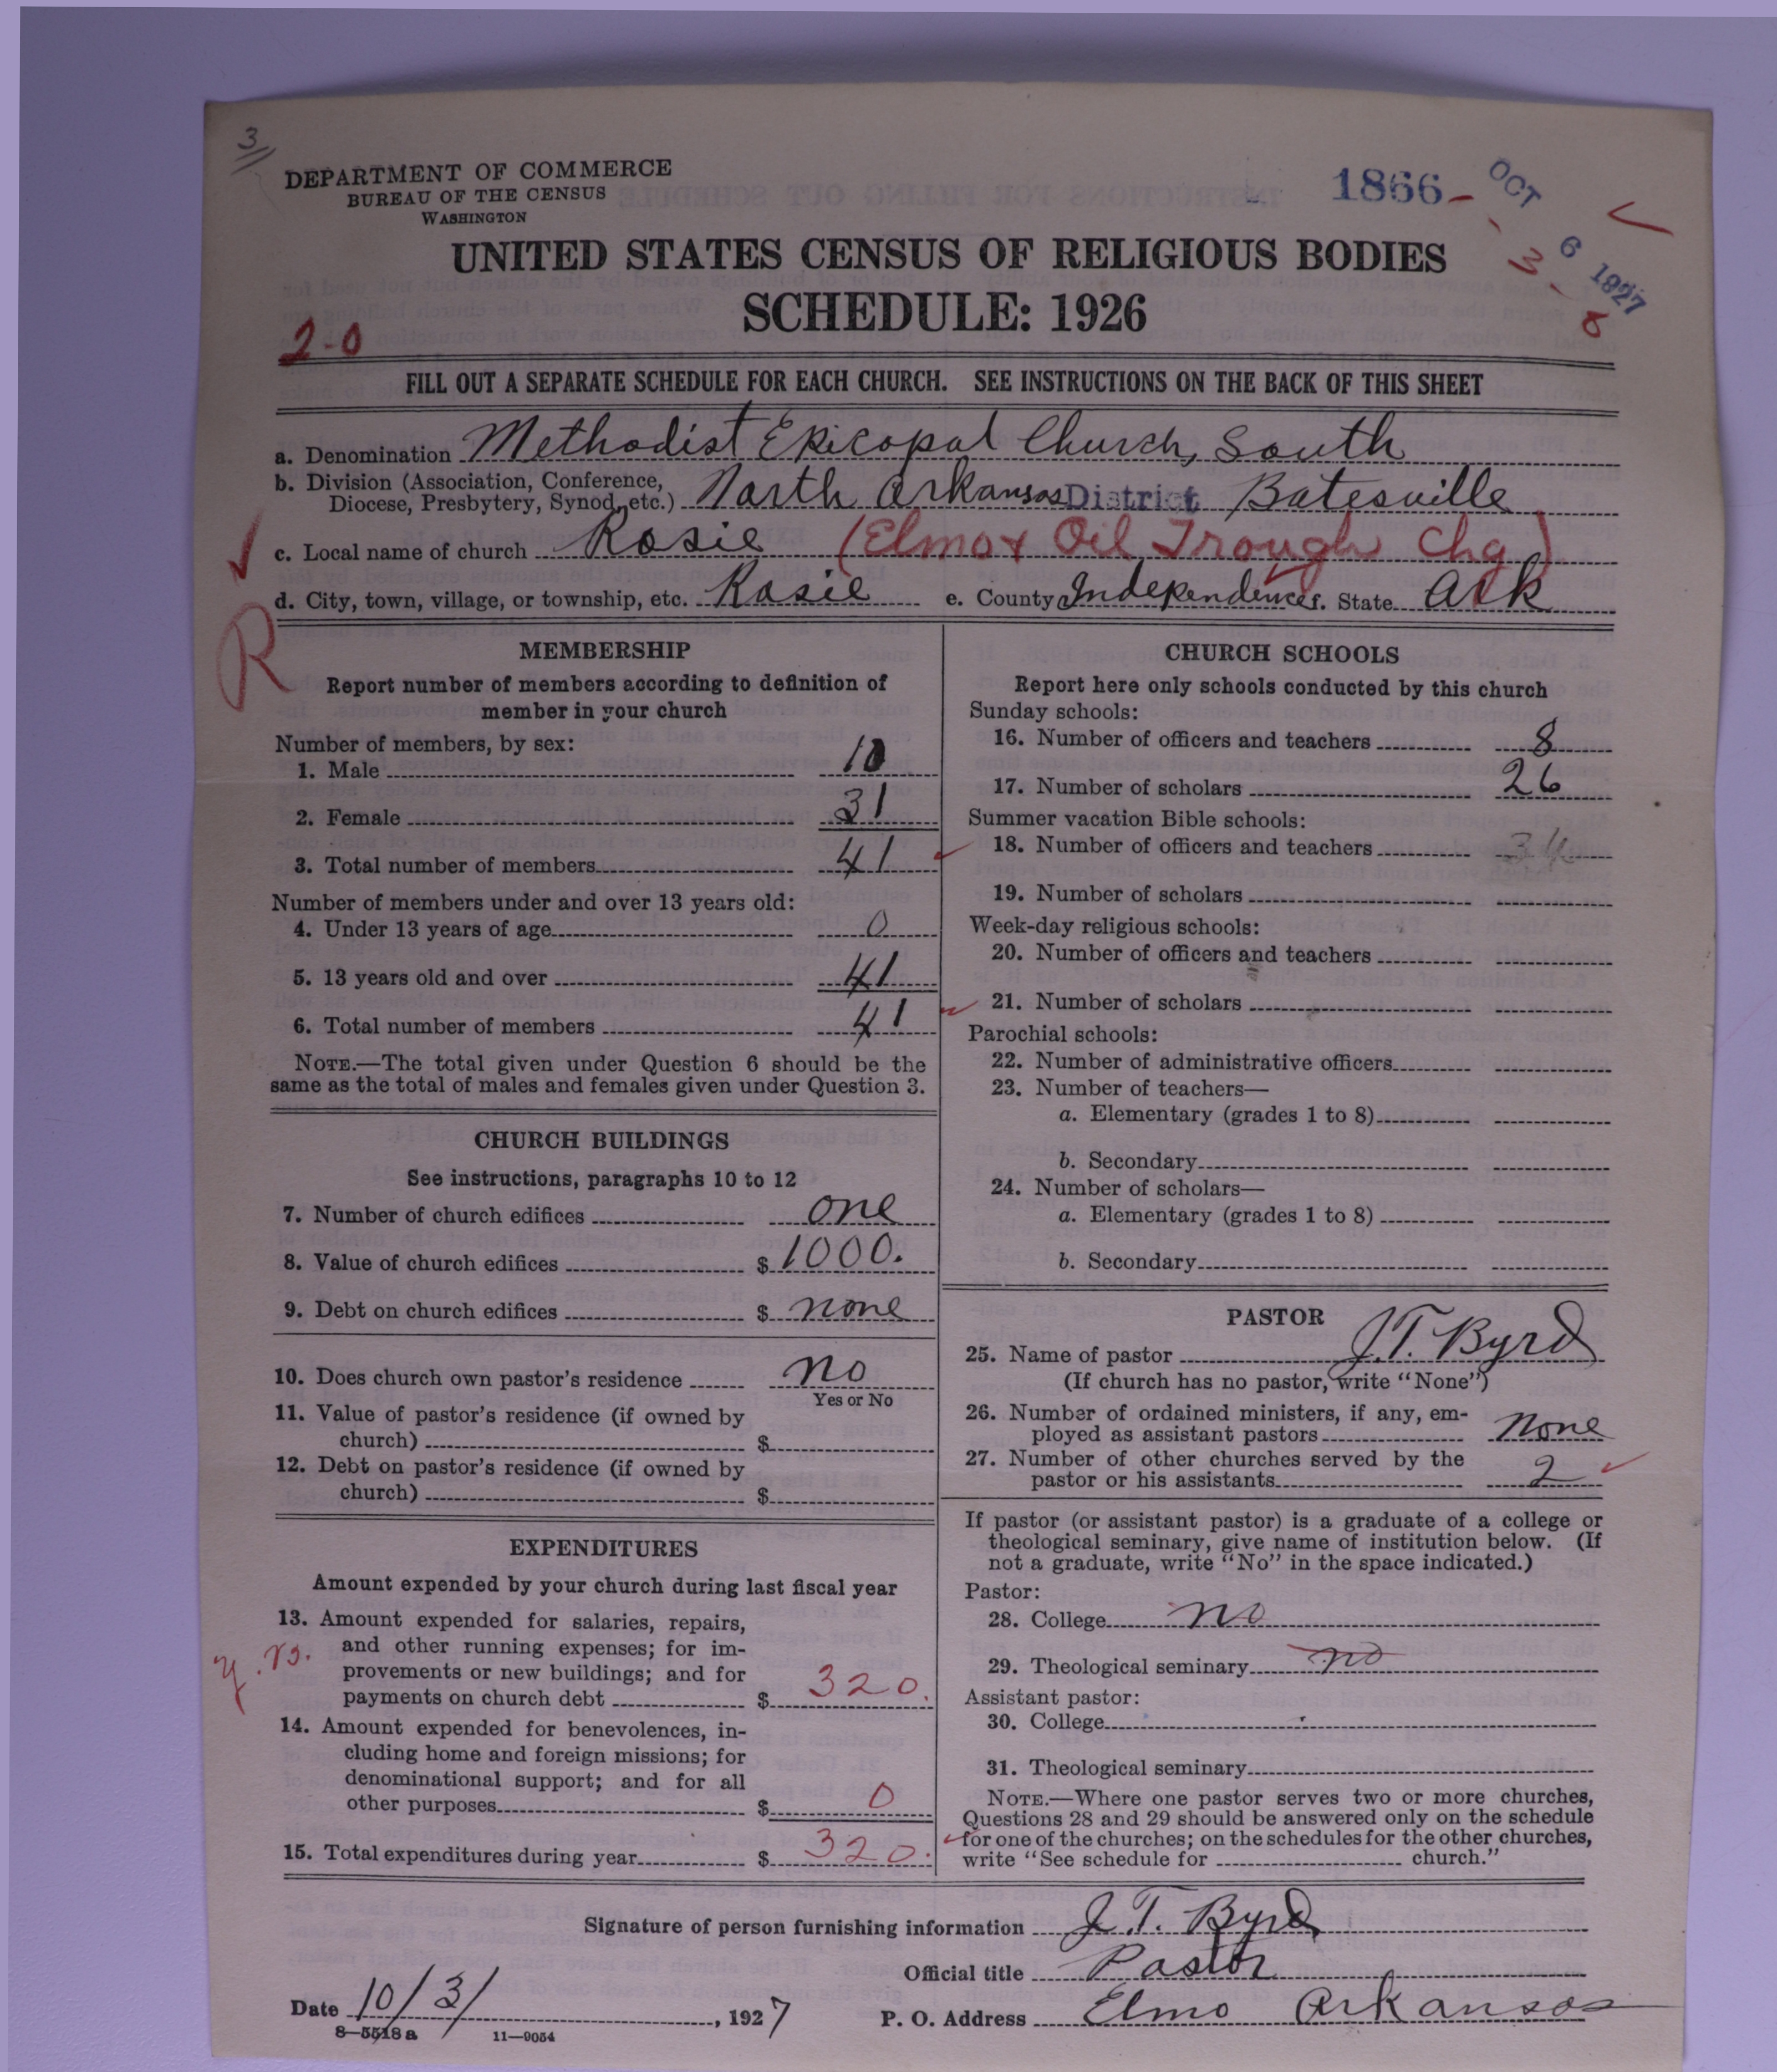 3
DEPARTMENT OF COMMERCE
BUREAU OF THE CENSUS
WASHINGTON
1866-
OCT 6 1927
3-8
UNITED STATES CENSUS OF RELIGIOUS BODIES
SCHEDULE: 1926
2-0
FILL OUT A SEPARATE SCHEDULE FOR EACH CHURCH. SEE INSTRUCTIONS ON THE BACK OF THIS SHEET
a. Denomination Methodist Epicopal Church, South
b. Division (Association, Conference,
Diocese, Presbytery, Synod, etc.) North Arkansas District Batesville
c. Local name of church Rosie (Elmo & Oil Trough Chg)
d. City, town, village, or township, etc. Rosie e. County Independence f. State Ark
R
MEMBERSHIP
Report number of members according to definition of
member in your church
Number of members, by sex:
1. Male 10
2. Female 31
3. Total number of members 41
Number of members under and over 13 years old:
4. Under 13 years of age 0
5. 13 years old and over 41
6. Total number of members 41
NOTE.—The total given under Question 6 should be the
same as the total of males and females given under Question 3.
CHURCH BUILDINGS
See instructions, paragraphs 10 to 12
7. Number of church edifices one
8. Value of church edifices $ 1000.
9. Debt on church edifices $ none
10. Does church own pastor's residence no
Yes or No
11. Value of pastor's residence (if owned by
church) $
12. Debt on pastor's residence (if owned by
church) $
EXPENDITURES
Amount expended by your church during last fiscal year
13. Amount expended for salaries, repairs,
and other running expenses; for im-
provements or new buildings; and for
payments on church debt $ 320.
14. Amount expended for benevolences, in-
cluding home and foreign missions; for
denominational support; and for all
other purposes $ 0
15. Total expenditures during year $ 320.
CHURCH SCHOOLS
Report here only schools conducted by this church
Sunday schools:
16. Number of officers and teachers 8
17. Number of scholars 26
Summer vacation Bible schools:
18. Number of officers and teachers 34
19. Number of scholars
Week-day religious schools:
20. Number of officers and teachers
21. Number of scholars
Parochial schools:
22. Number of administrative officers
23. Number of teachers—
a. Elementary (grades 1 to 8)
b. Secondary
24. Number of scholars—
a. Elementary (grades 1 to 8)
b. Secondary
PASTOR
25. Name of pastor J.T. Byrd
(If church has no pastor, write "None")
26. Number of ordained ministers, if any, em-
ployed as assistant pastors none
27. Number of other churches served by the
pastor or his assistants 2
If pastor (or assistant pastor) is a graduate of a college or
theological seminary, give name of institution below. (If
not a graduate, write "No" in the space indicated.)
Pastor:
28. College no
29. Theological seminary no
Assistant pastor:
30. College
31. Theological seminary
NOTE.—Where one pastor serves two or more churches,
Questions 28 and 29 should be answered only on the schedule
for one of the churches; on the schedules for the other churches,
write "See schedule for church."
Signature of person furnishing information J.T. Byrd
Official title Pastor
Date 10/3/, 1927 P. O. Address Elmo Arkansas
8—5518 a 11—9054